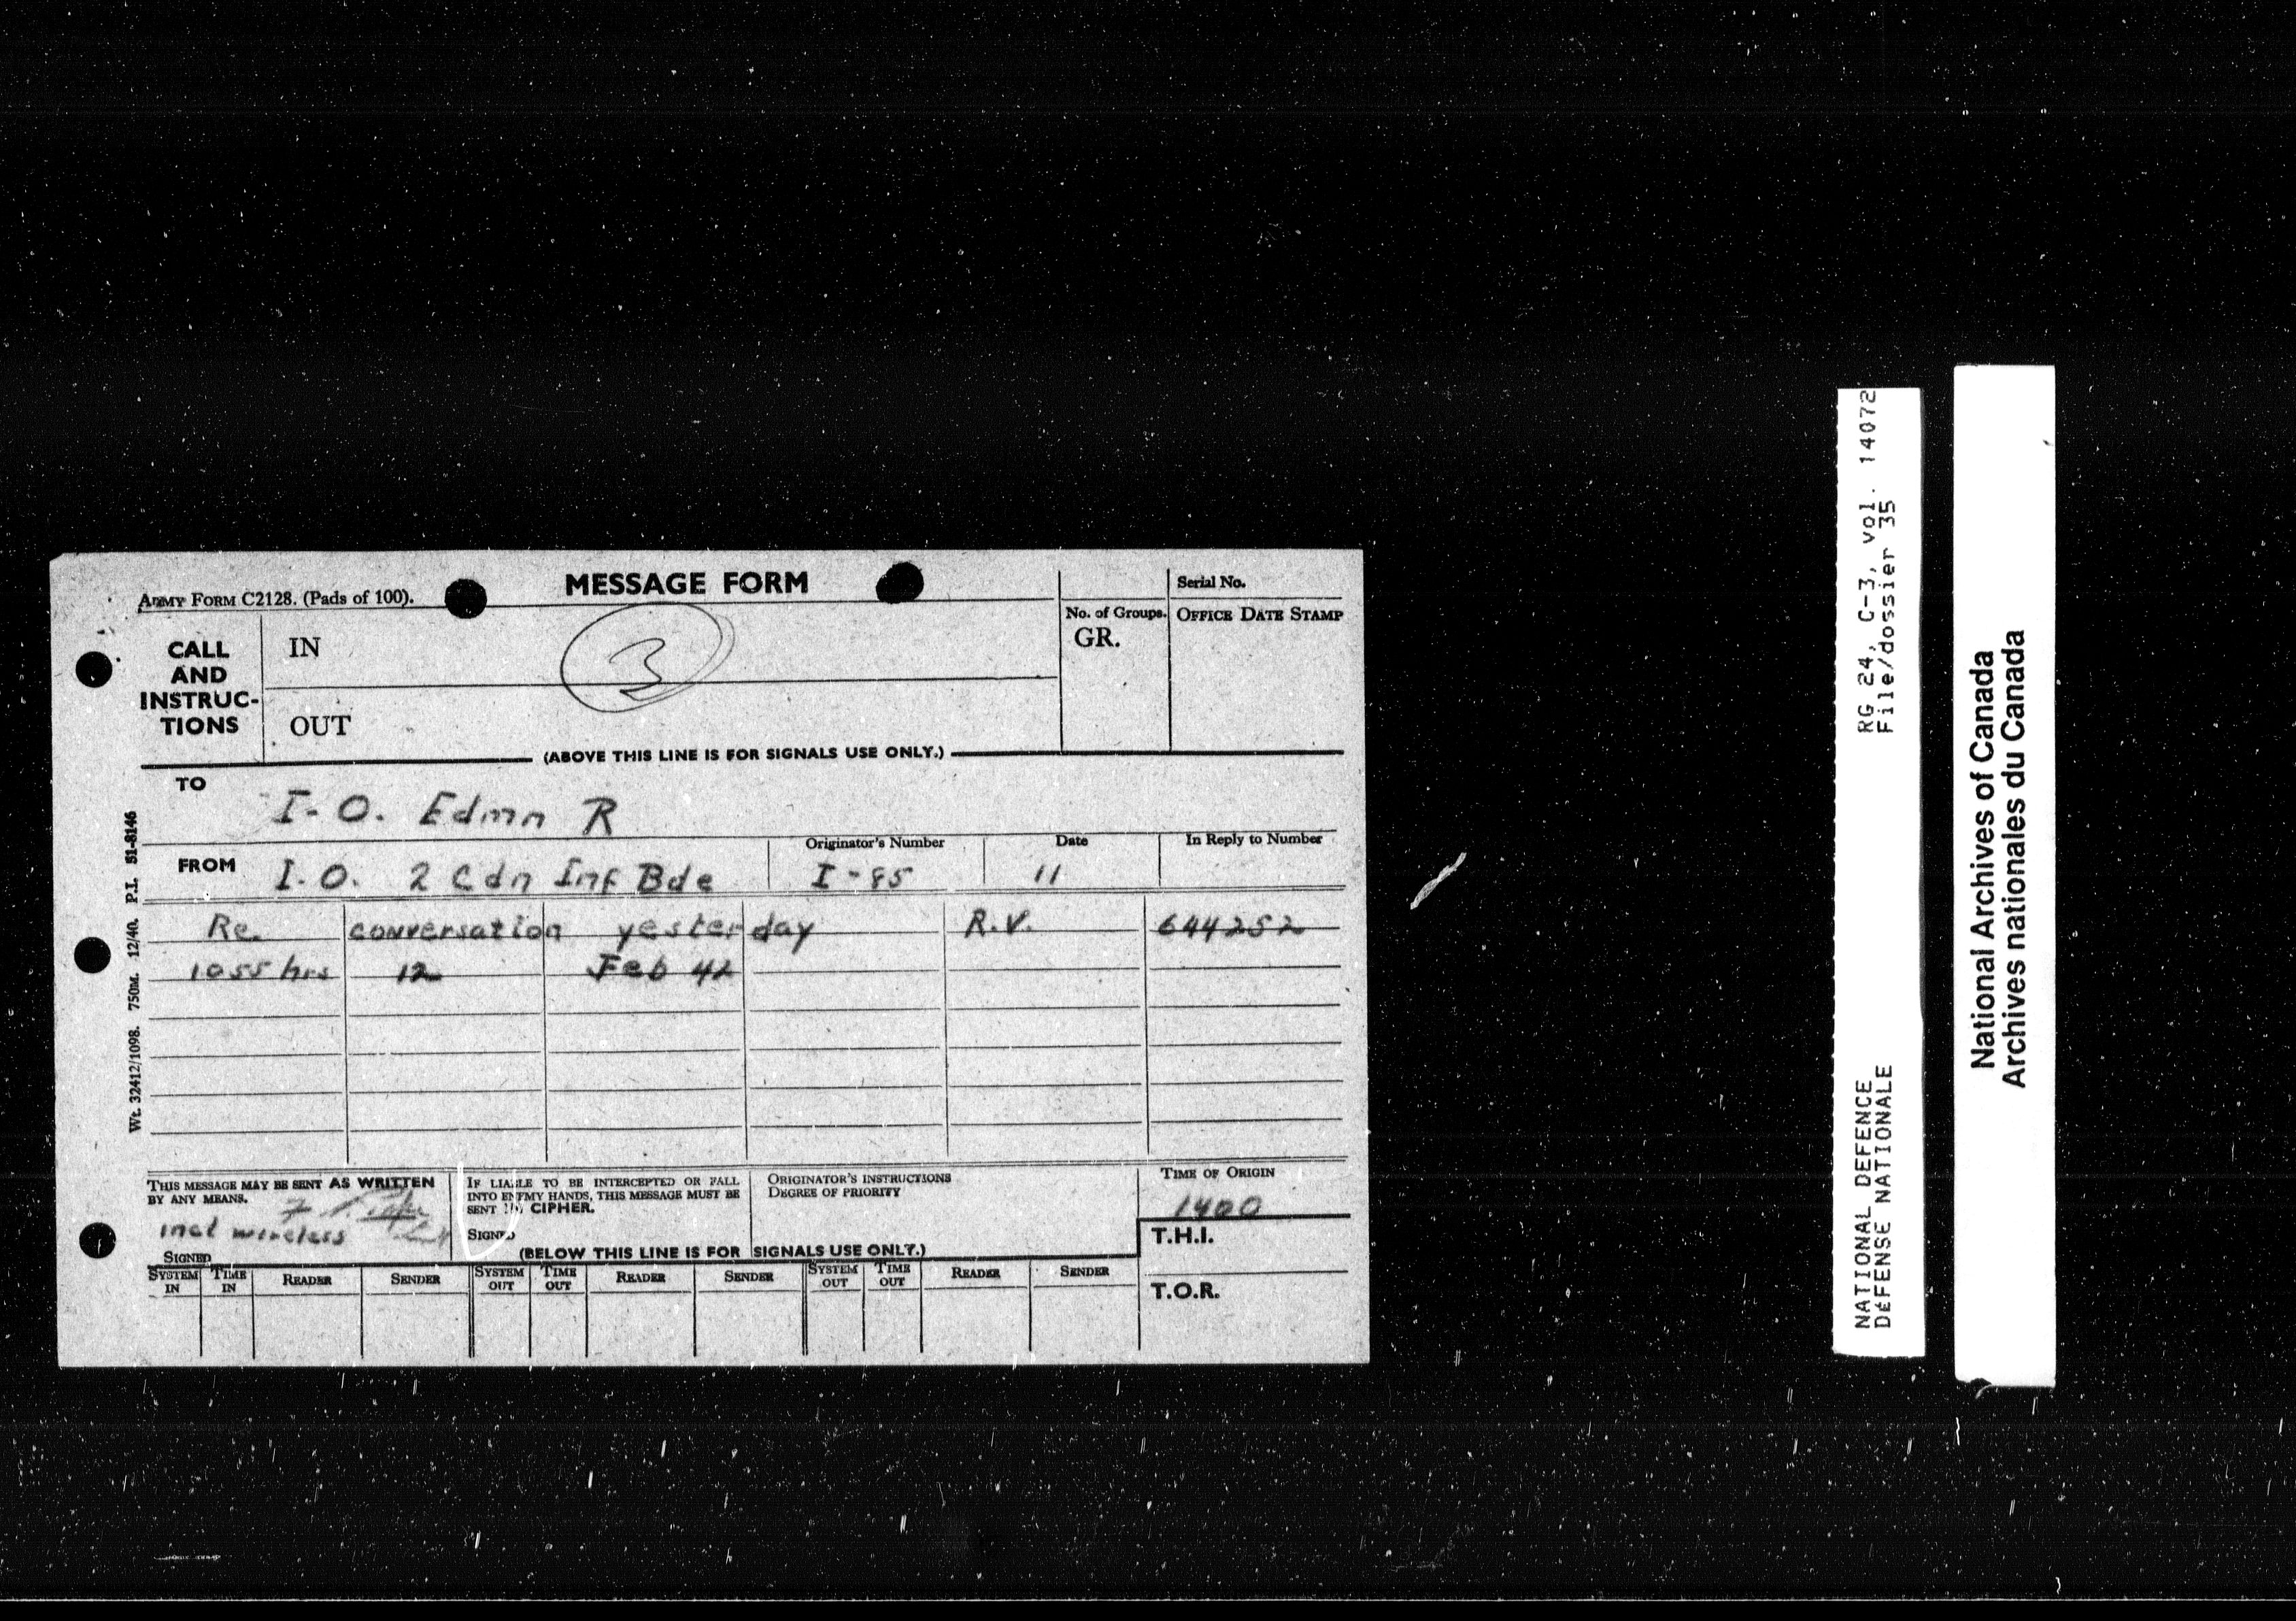 ARMY FORM C2128. (Pads of 100).
MESSAGE FORM
Serial No.
CALL AND INSTRUC-TIONS
IN
3
No. of Groups.
GR.
OFFICE DATE STAMP
OUT
(ABOVE THIS LINE IS FOR SIGNALS USE ONLY.)
TO
I-O. Edmn R
FROM
I.O. 2 Cdn Inf Bde
Originator's Number
I-85
Date
11
In Reply to Number
Re. conversation yesterday R.V. 644252
1055 hrs 12 Feb 42
THIS MESSAGE MAY BE SENT AS WRITTEN
BY ANY MEANS.
incl wireless
SIGNED
IF LIABLE TO BE INTERCEPTED OR FALL
INTO ENEMY HANDS, THIS MESSAGE MUST BE
SENT IN CIPHER.
SIGNED
ORIGINATOR'S INSTRUCTIONS
DEGREE OF PRIORITY
TIME OF ORIGIN
1400
T.H.I.
(BELOW THIS LINE IS FOR SIGNALS USE ONLY.)
SYSTEM IN TIME IN READER SENDER SYSTEM OUT TIME OUT READER SENDER SYSTEM OUT TIME OUT READER SENDER
T.O.R.
Wt. 32412/1098. 750M. 12/40. P.I. 51-8146
NATIONAL DEFENCE RG 24, C-3, vol. 14072
DéFENSE NATIONALE File/dossier 35
National Archives of Canada
Archives nationales du Canada